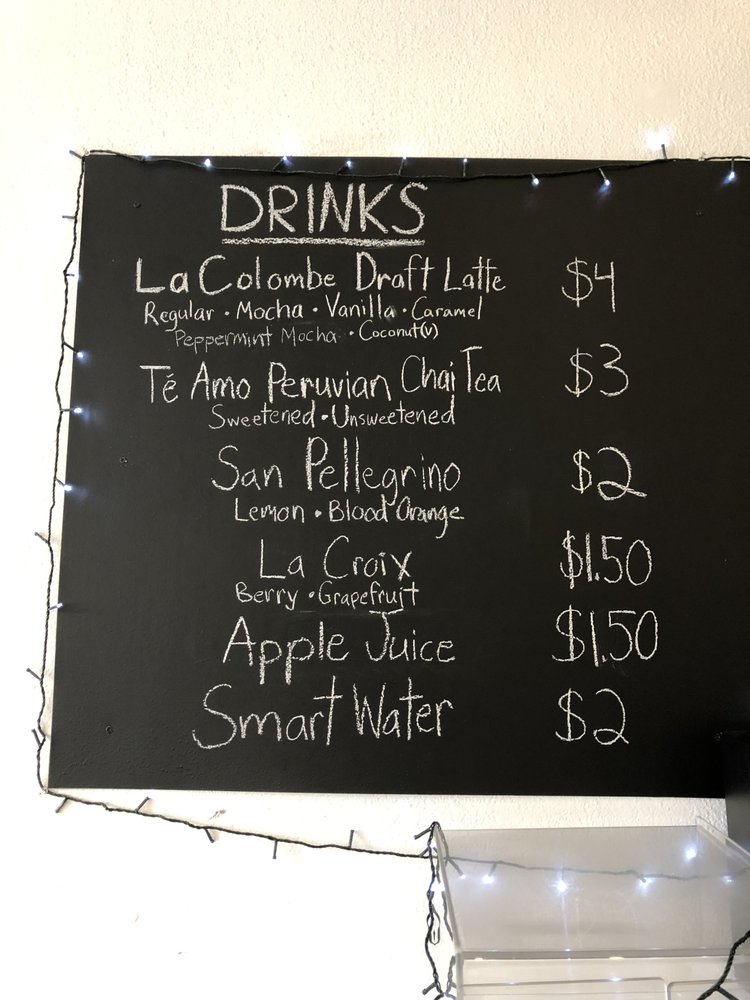 DRINKS
La Colombe Draft Latte $4
Regular • Mocha • Vanilla • Caramel
Peppermint Mocha • Coconut(v)
Té Amo Peruvian Chai Tea $3
Sweetened • Unsweetened
San Pellegrino $2
Lemon • Blood Orange
La Croix $1.50
Berry • Grapefruit
Apple Juice $1.50
Smart Water $2